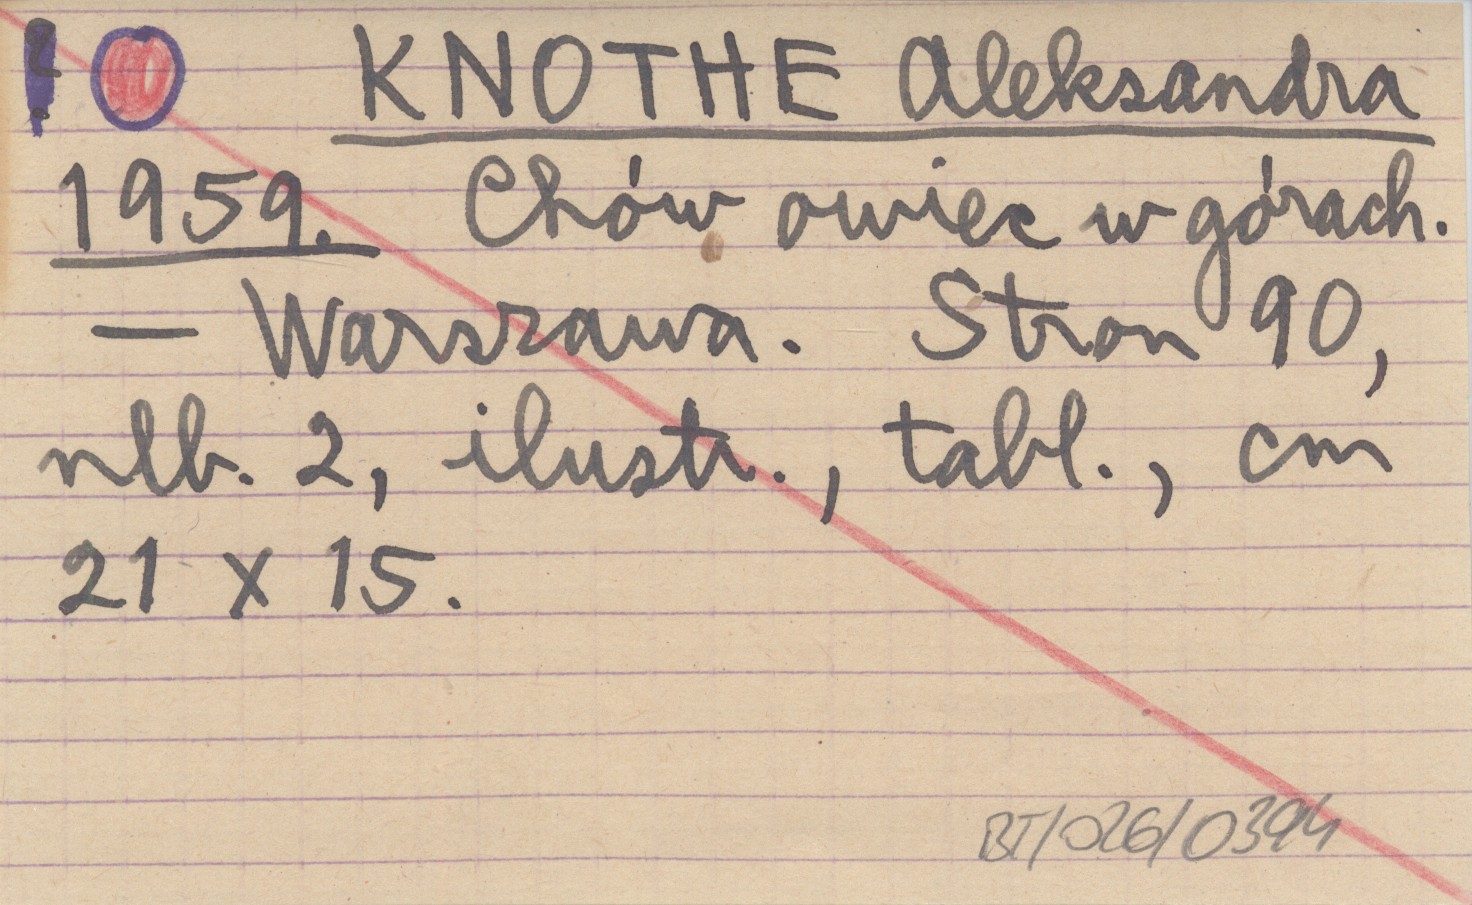 KNOTHE Aleksandra
1959. Chów owiec w górach.
— Warszawa. Stron 90,
nlb. 2, ilustr., tabl., cm
21 x 15.
BT/026/0394